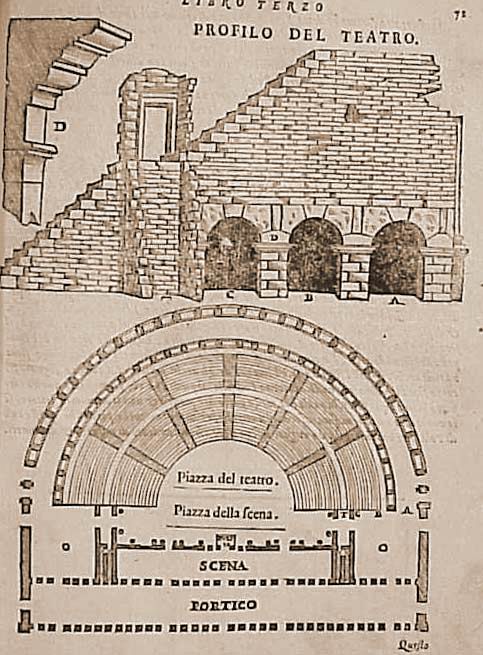 LIBRO TERZO
71
PROFILO DEL TEATRO.
D
D
C B A
Piazza del teatro.
Piazza della scena.
T C B A
O O
SCENA
PORTICO
Questo